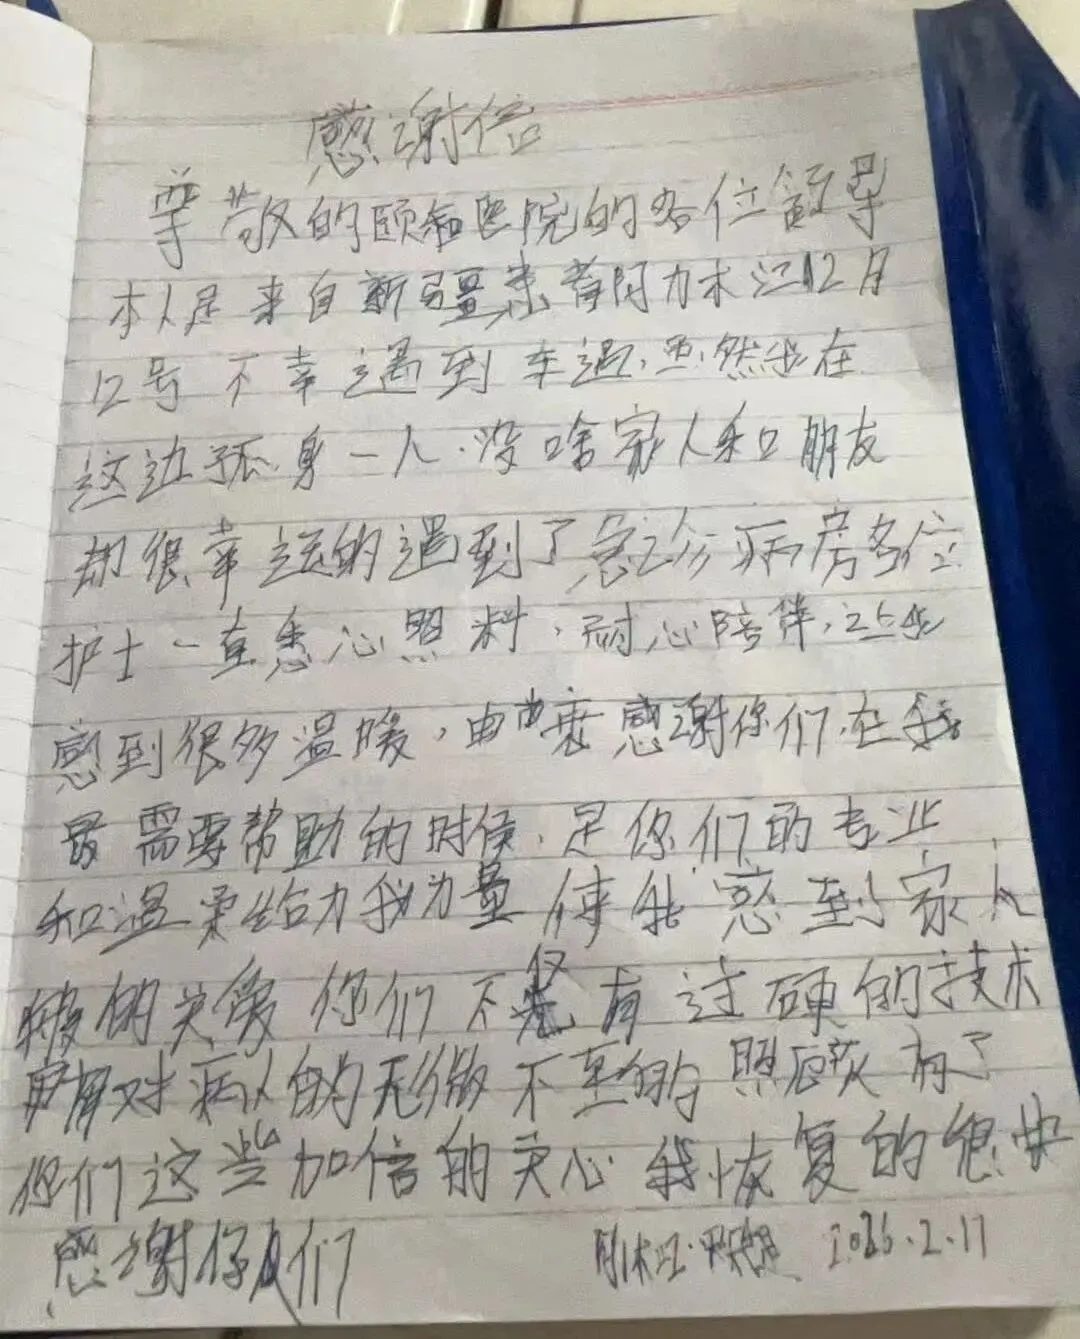 感谢信
尊敬的颐和医院的各位领导
本人是来自新疆患者阿力木江12月
12号不幸遇到车过,虽然我在
这边孤身一人.没啥家人和朋友
却很幸运的遇到了急诊病房各位
护士一直悉心照料,耐心陪伴,让我
感到很多温暖,由衷感谢你们,在我
最需要帮助的时候,是你们的专业
和温柔给力我力量使我感到家人
般的关爱你们不仅有过硬的技术
更有对病人的无微不至的照顾有了
你们这些加倍的关心我恢复的很快
感谢你们
2026.2.17